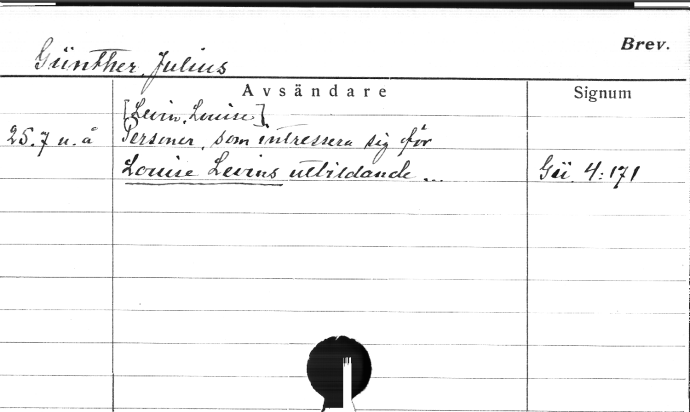 Brev.
Günther, Julius
Avsändare
Signum
[Levin, Louise]
25.7 u. å Personer, som intressera sig för
Louise Levins utbildande ... Gü. 4:171